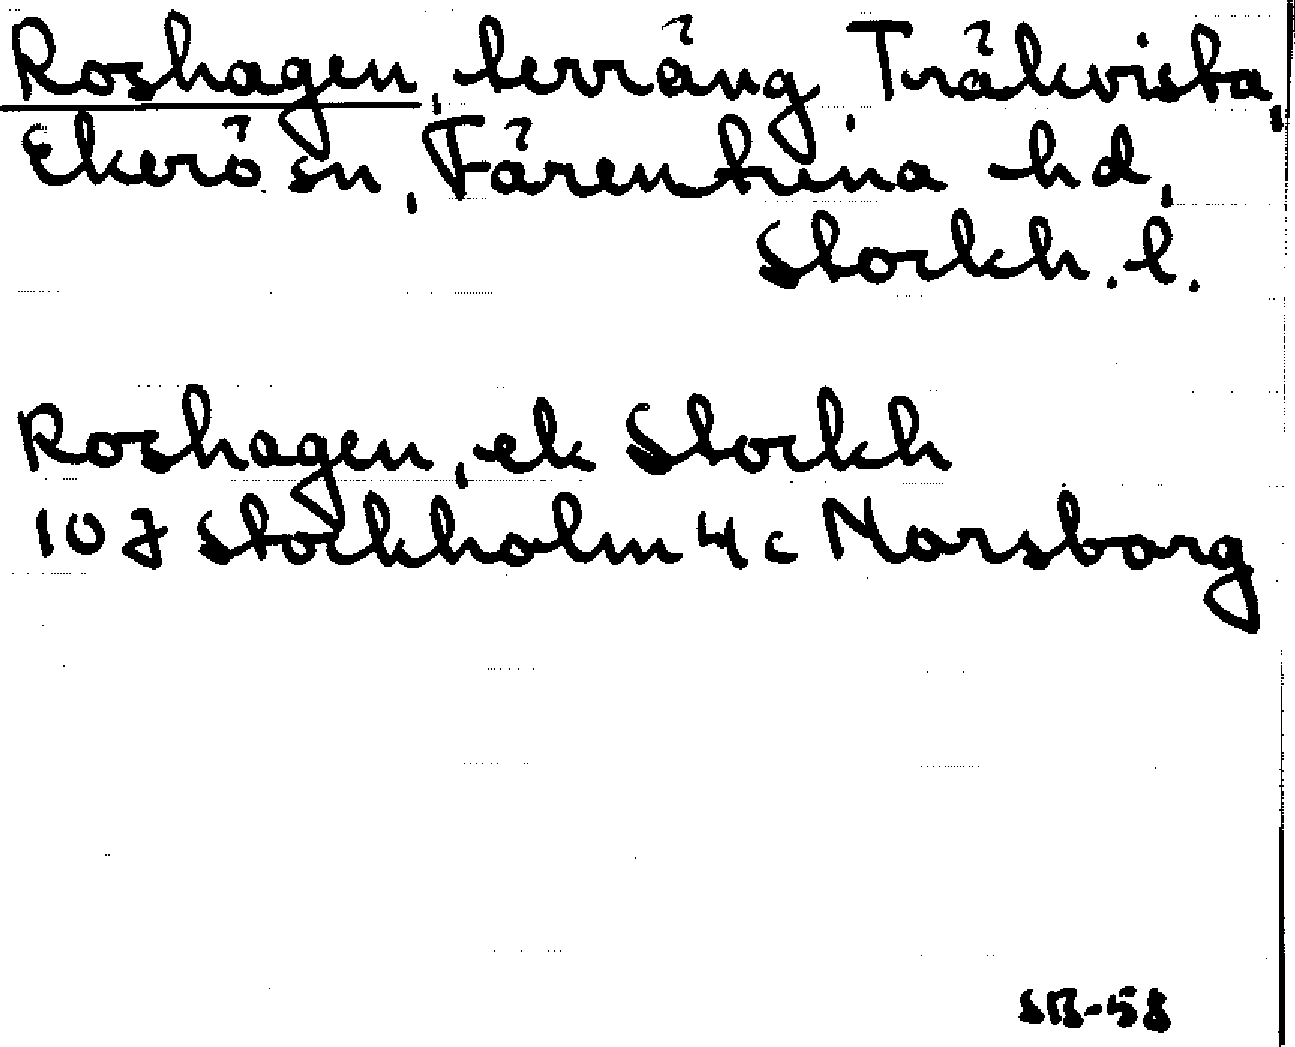 Roshagen, terräng, Träkvista,
Ekerö sn, Färentuna hd,
Stockh. l.
Roshagen, ek Stockh
10J Stockholm 4c Norsborg
SB-58